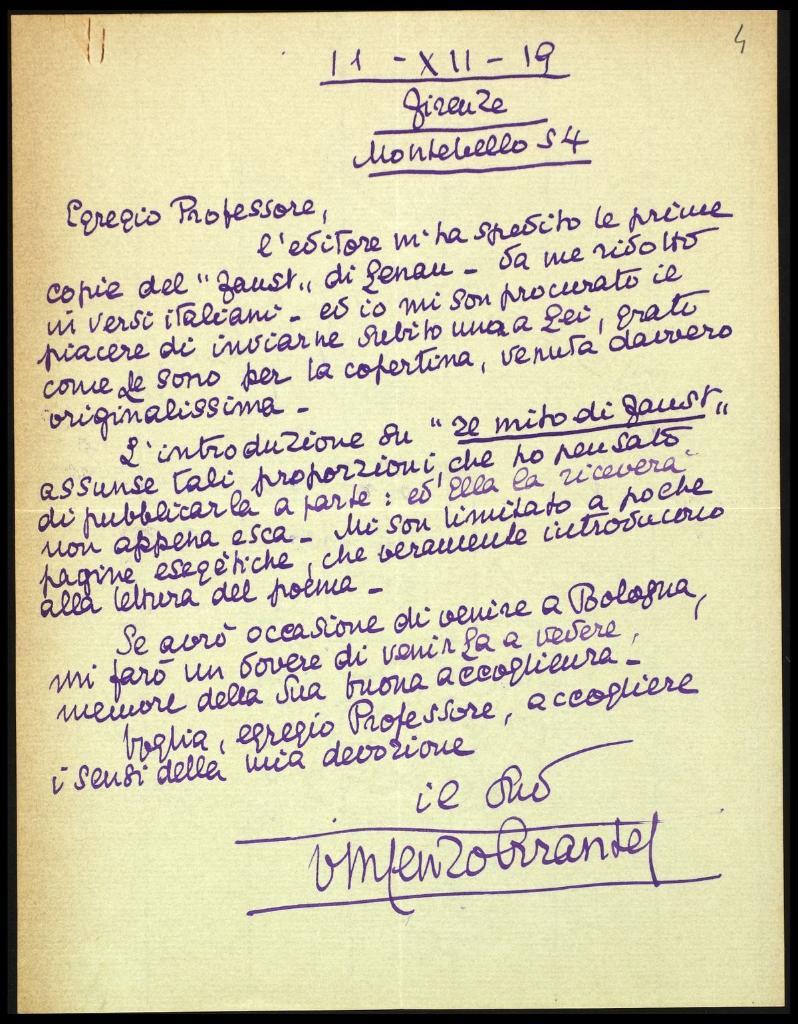 4
11 - XII - 19
Firenze
Montebello 54
Egregio Professore,
l'editore m'ha spedito le prime
copie del "Faust" di Lenau - da me ridotto
in versi italiani - ed io mi son procurato il
piacere di inviarne subito una a Lei, grato
come Le sono per la copertina, venuta davvero
originalissima -
L'introduzione su "Il mito di Faust"
assunse tali proporzioni, che ho pensato
di pubblicarla a parte: ed Ella la riceverà
non appena esca - Mi son limitato a poche
pagine esegètiche, che veramente introducono
alla lettura del poema -
Se avrò occasione di venire a Bologna,
mi farò un dovere di venirLa a vedere,
memore della Sua buona accoglienza -
Voglia, egregio Professore, accogliere
i sensi della mia devozione
il Suo
Vincenzo Errante